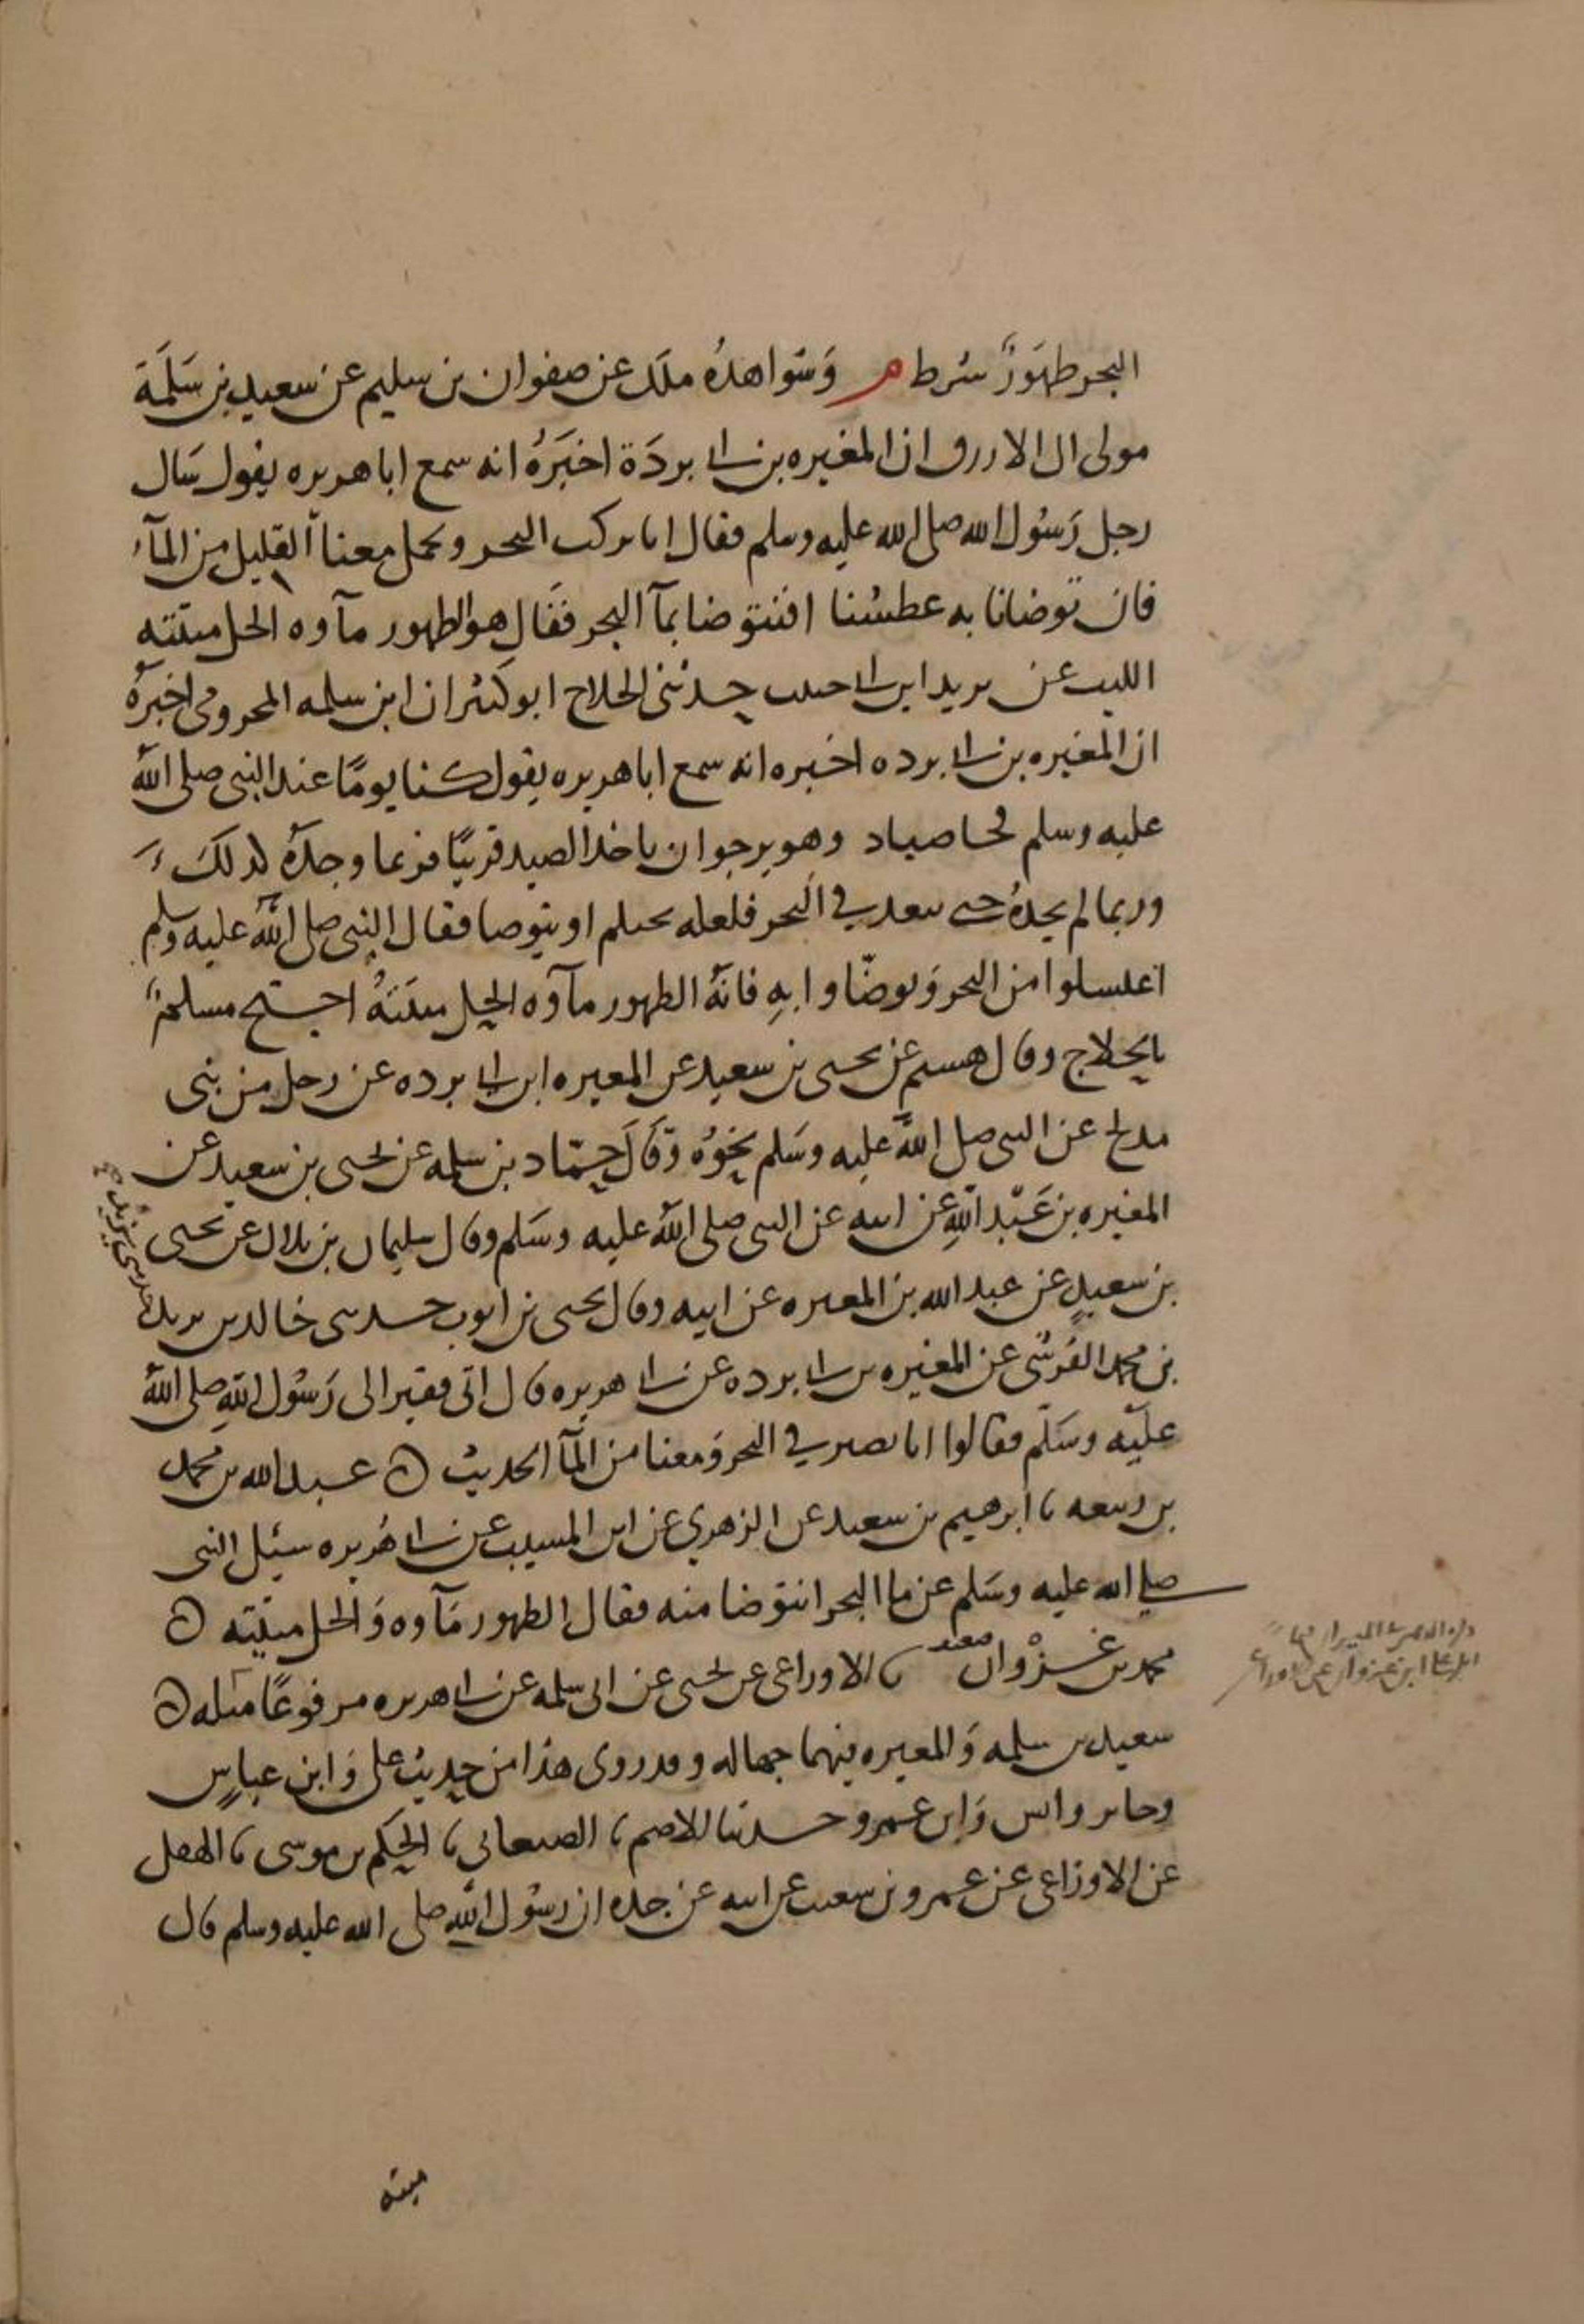 البحر طهَورٌ شرط م وَشواهدُه ملك عن صفوان بن سليم عن سعيد بن سَلَمَة
مولى ال الازرق ان المغيره بن ابي بردَة اخبَرَهُ انه سمع ابا هريره يقول سَال
رجل رَسُول الله صلى الله عليه وسلم فقال انا نركب البحر ونحمل معنا القليل من المآء
فان توضانا به عطشنا افنتوضا بمآ البحر فقال هو الطهور مآوه الحل ميتته
الليث عن يزيد ابن ابي حبيب حدثني الجلاح ابو كثير ان ابن سلمه المخزومي اخبره
ان المغيره بن ابي برده اخبره انه سمع ابا هريره يقول كنا يومًا عند النبي صلى الله
عليه وسلم فجا صياد وهو يرجوا ن ياخذ الصيد قريبًا فربما وجدَهُ كذلكَ
وربما لم يجدهُ حتى يبعد في البحر فلعله يحتلم او يتوضا فقال النبي صلى الله عليه وسلم
اغتسلوا من البحر وَتوضّاوا بهِ فانهُ الطهور مآوه الحِل ميتَتهُ احتج مسلمٌ
بالجلاج وقال هشيم عن يحيى بن سعيد عن المغيره ابن ابي برده عن رجل من بني
مدلج عن النبي صلى الله عليه وسَلم نحوُه وَقَالَ حمّاد بن سلمه عن يحيى بن سعيد عن
المغيره بن عَبْد اللهِ عن ابيه عن النبي صلى الله عليه وسَلم وقال سليمان بن بلال عن يحيى
بن سعيدٍ عن عبد الله بن المغيره عن ابيه وقال يحيى بن ايوب حدثني خالد بن يزيد
بن محمد القرشي عن المغيره بن ابي برده عن ابي هريره قال اتى فقير الى رَسُول اللهِ صلى الله
عليه وسَلم فقالوا انا نصير في البحر وَمعنا من المآ الحديث ه عبد الله بن محمد
بن ربيعه نا ابرهيم بن سعيد عن الزهري عن ابن المسيب عن ابي هُريره سئِل النبي
صلي الله عليه وسَلم عن ما البحر انتوضا منه فقال الطهور مَآوه وَالحل ميتته ه
محمد بن غزْوان نا الاوزاعي عن يحيى عن ابي سلمه عن ابي هريره مرفوعًا مثله ه
سعيد بن سلمه وَالمغيره فيهما جهاله وقد روى هذا من حديث على وَابن عباسٍ
وجابر وانس وَابن عمرو حدثنا الاصم نا الصغاني نا الحكم بن موسى نا الهقل
عن الاوزاعي عن عمرو بن شعيب عن ابيه عن جده ان رسُول اللهِ صلى الله عليه وسلم قال
ميته